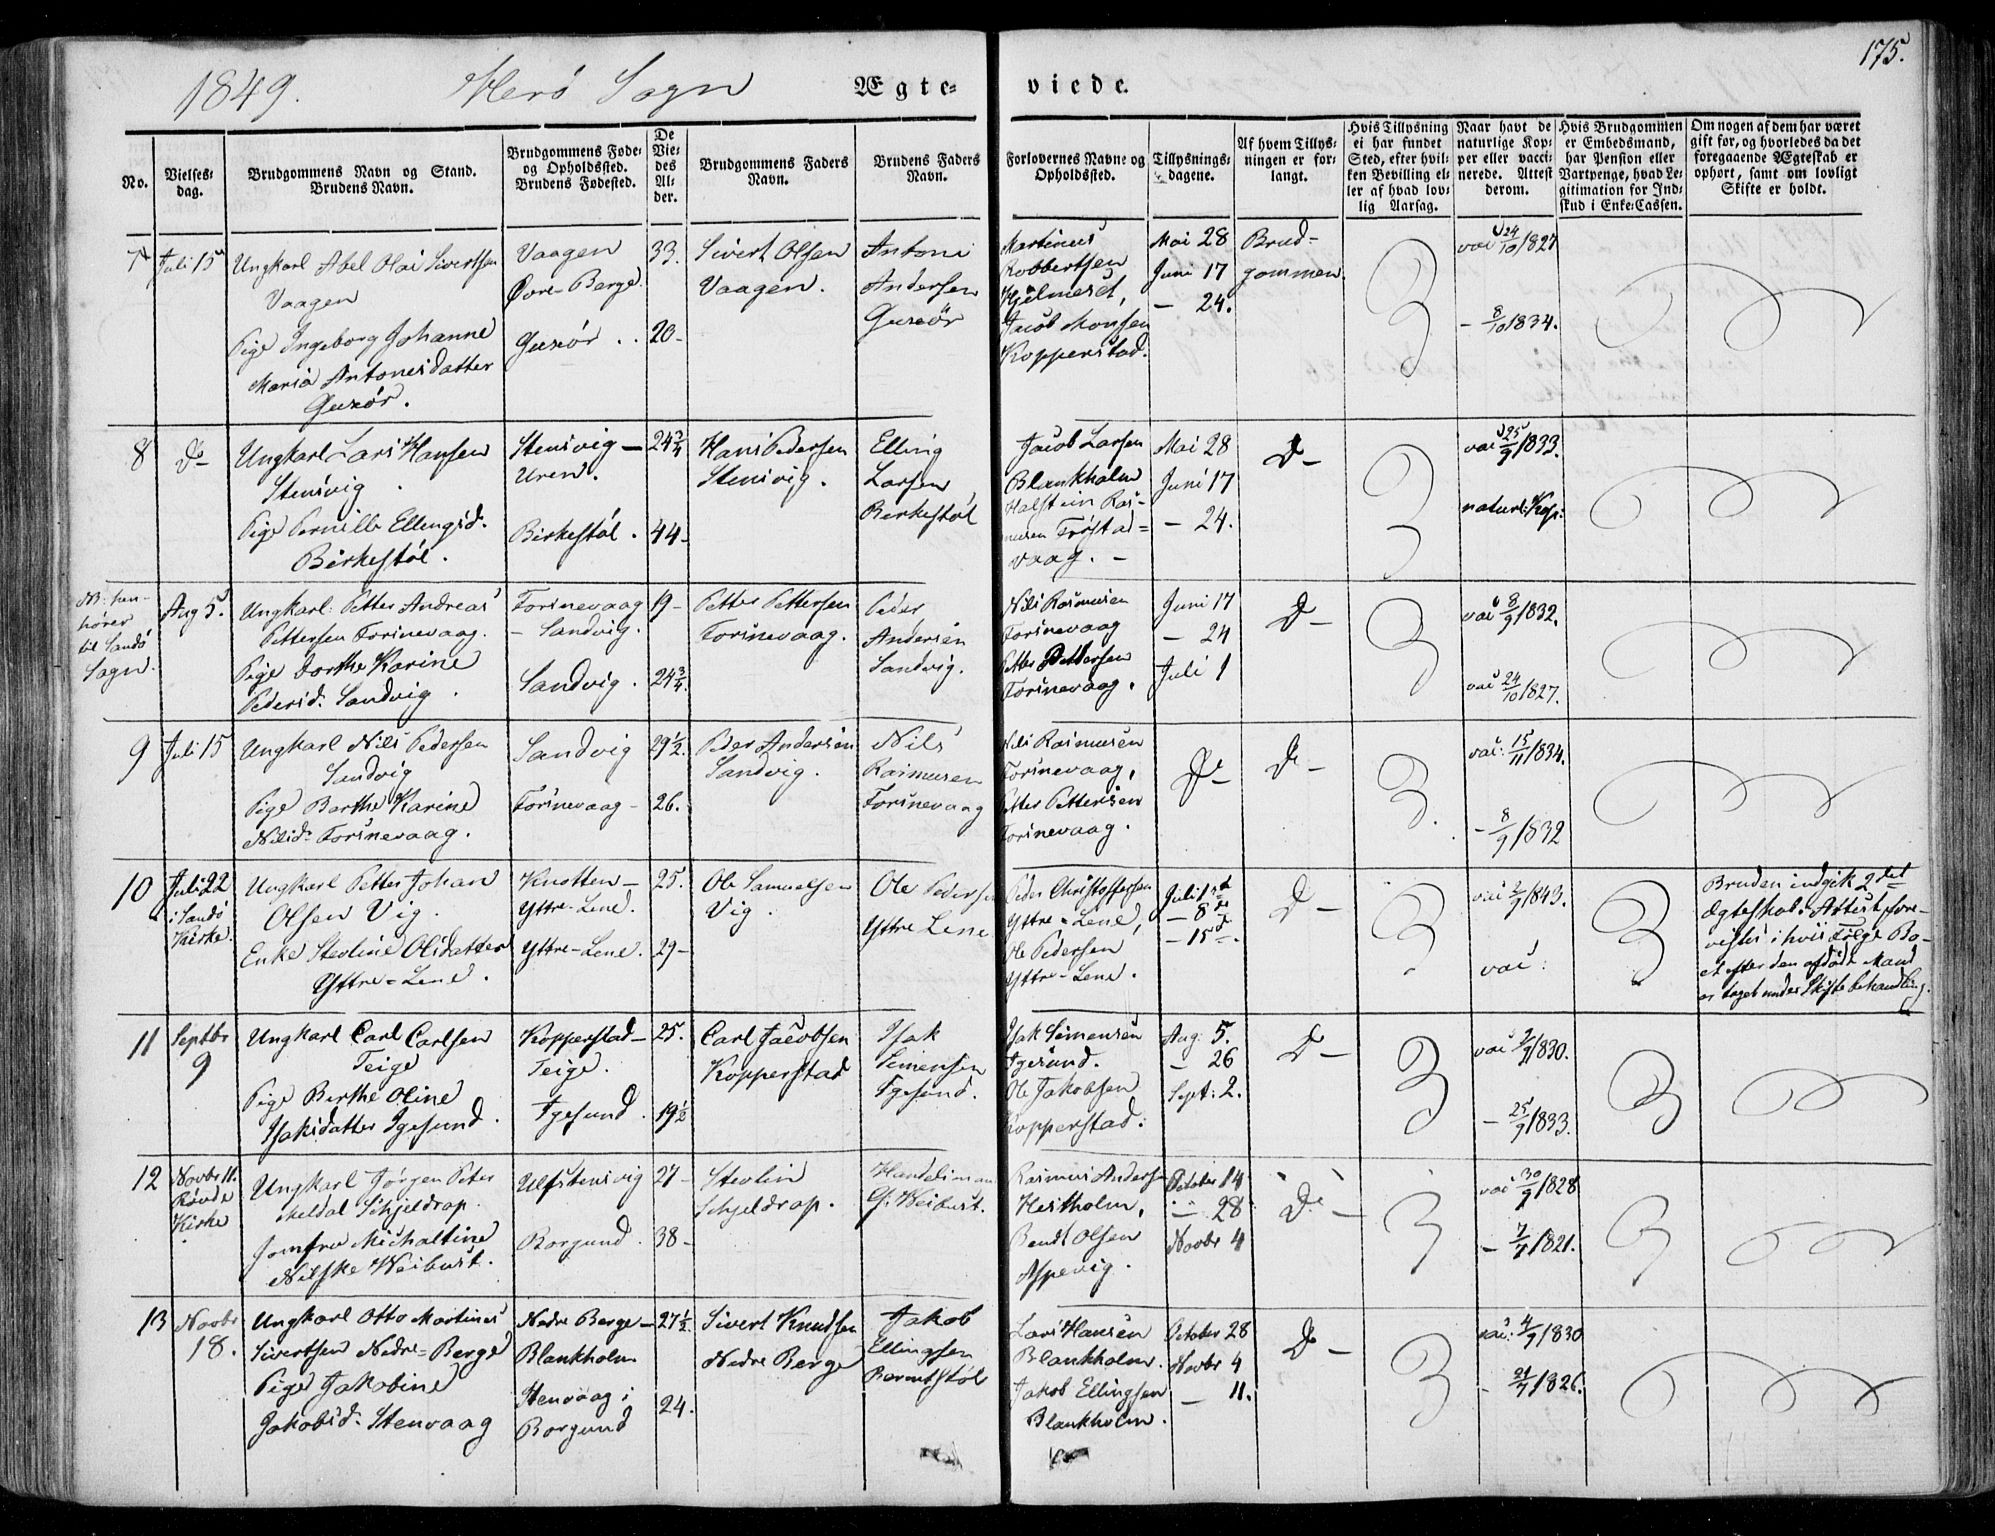 175.
1849. Herö Sogn Ægte- viede.
No.
Vielses-
dag.
Brudgommens Navn og Stand.
Brudens Navn.
Brudgommens Føde-
og Opholdssted.
Brudens Fødested.
De
Vie-
des
Al-
der.
Brudgommens Faders
Navn.
Brudens Faders
Navn.
Forlovernes Navne og
Opholdssted.
Tillysnings-
dagene.
Af hvem Tillys-
ningen er for-
langt.
Hvis Tillysning
ei har fundet
Sted, efter hvil-
ken Bevilling el-
ler af hvad lov-
lig Aarsag.
Naar havt de
naturlige Kop-
per eller vacci-
nerede. Attest
derom.
Hvis Brudgommen
er Embedsmand,
har Pension eller
Vartpenge, hvad Le-
gitimation for Ind-
skud i Enke-Cassen.
Om nogen af dem har været
gift før, og hvorledes da det
foregaaende Ægteskab er
ophørt, samt om lovligt
Skifte er holdt.
7
Juli 15
Ungkarl Abel Olai Sivertsen
Vaagen
Pige Ingeborg Johanne
Maria Antonesdatter
Guseör.
Vaagen
Övre-Berge.
Guseör . .
33.
20-
Sivert Olsen
Vaagen.
Antoni
Andersen
Guseör
Martinus
Robbertsen
Hjelmeset,
Jacob Monsen
Kopperstad.
Mai 28
Juni 17
- 24.
Brud-
gommen.
vac 24/10 1827
- 8/10 1834.
8
Do-
Ungkarl Lars Hansen
Stensvig.
Pige Pernille Ellingsd.
Birkestöl.
Stensvig -
Uren.
Birkestöl.
24 3/4
44-
Hans Pedersen
Stensvig.
Elling
Larsen
Birkestöl
Jacob Larsen
Blankholm
Halstein Ras-
musen Fröstad-
vaag. -
Mai 28
Juni 17
- 24.
Do-
vac 25/9 1833.
naturl: Kop:
NB: hen-
hörer
til Sandö
Sogn.
Aug 5.
Ungkarl: Petter Andreas
Pettersen Torsnevaag.
Pige Dorthe Karine
Pedersd. Sandvig.
Torsnevaag
- Sandvig.
Sandvig.
19-
24 3/4.
Petter Pettersen
Torsnevaag.
Peder
Andersen
Sandvig.
Nils Rasmusen
Torsnevaag
Petter Pettersen
Torsnevaag.
Juni 17
- 24
Juli 1
Do-
vac 8/9 1832.
vac 24/10 1827.
9
Juli 15
Ungkarl Nils Pedersen
Sandvig
Pige Berthe Karine
Nilsd. Torsnevaag.
Sandvig
Torsnevaag -
29 1/2.
26.
Peder Andersen
Sandvig.
Nils
Rasmusen
Torsnevaag
Nils Rasmusen
Torsnevaag,
Petter Pettersen
Torsnevaag.
Do-
Do-
vac: 15/11 1834.
- 8/9 1832
10
Juli 22
i Sandö
Kirke.
Ungkarl Petter Johan
Olsen Vig.
Enke Stevline Olsdatter
Yttre-Lene.
Knotten -
Yttre-Lene.
Yttre-Lene.
25.
29-
Ole Samuelsen
Vig.
Ole Pedersen
Yttre Lene
Peder Christoffersen
Yttre-Lene,
Ole Pedersen
Yttre-Lene.
Juli 1
- 8
- 15.
Do-
vac 1843.
vac:
Bruden indgik 2det
Ægteskab. Attest fore-
vistes i hvis Fölge Bo-
et efter den afdöde Mand
er taget under Skiftebehandling.
11
Septbr
9
Ungkarl Carl Carlsen
Teige
Pige Berthe Oline
Isaksdatter Igesund.
Kopperstad -
Teige.
Igesund.
25.
19 1/2
Carl Jacobsen
Kopperstad
Isak
Simensen
Igesund.
Isak Simensen
Igesund.
Ole Jakobsen
Kopperstad.
Aug: 5.
- 26
Sept: 2.
Do-
vac 1830.
- 25/9 1833.
12
Novbr 11.
Rövde
Kirke
Ungkarl Jörgen Peter
Meldal Schjeldrop.
Jomfru Michaeline
Nilske Weibust.
Ulfstensvig
Borgund.
27-
38-
Stevlin
Schjeldrop.
Handelsman
G: Weibust.
Rasmus Andersen
Hestholm,
Bendt Olsen
Aspevig.
October 14
- 28
Novbr 4
Do-
vac 30/9 1828
- 1821.
13
Novbr
18.
Ungkarl Otto Martinus
Sivertsen Nedre-Berge
Pige Jakobine
Jakobsd. Stenvaag
Nedre Berge -
Blankholm
Stenvaag i
Borgund
27 1/2.
24.
Sivert Knudsen
Nedre Berge
Jakob
Ellingsen
Lars Hansen
Blankholm.
Jakob Ellingsen
Blankholm.
October 28
Novbr 4
- 11.
Do-
vac: 4/9 1830
- 1826.